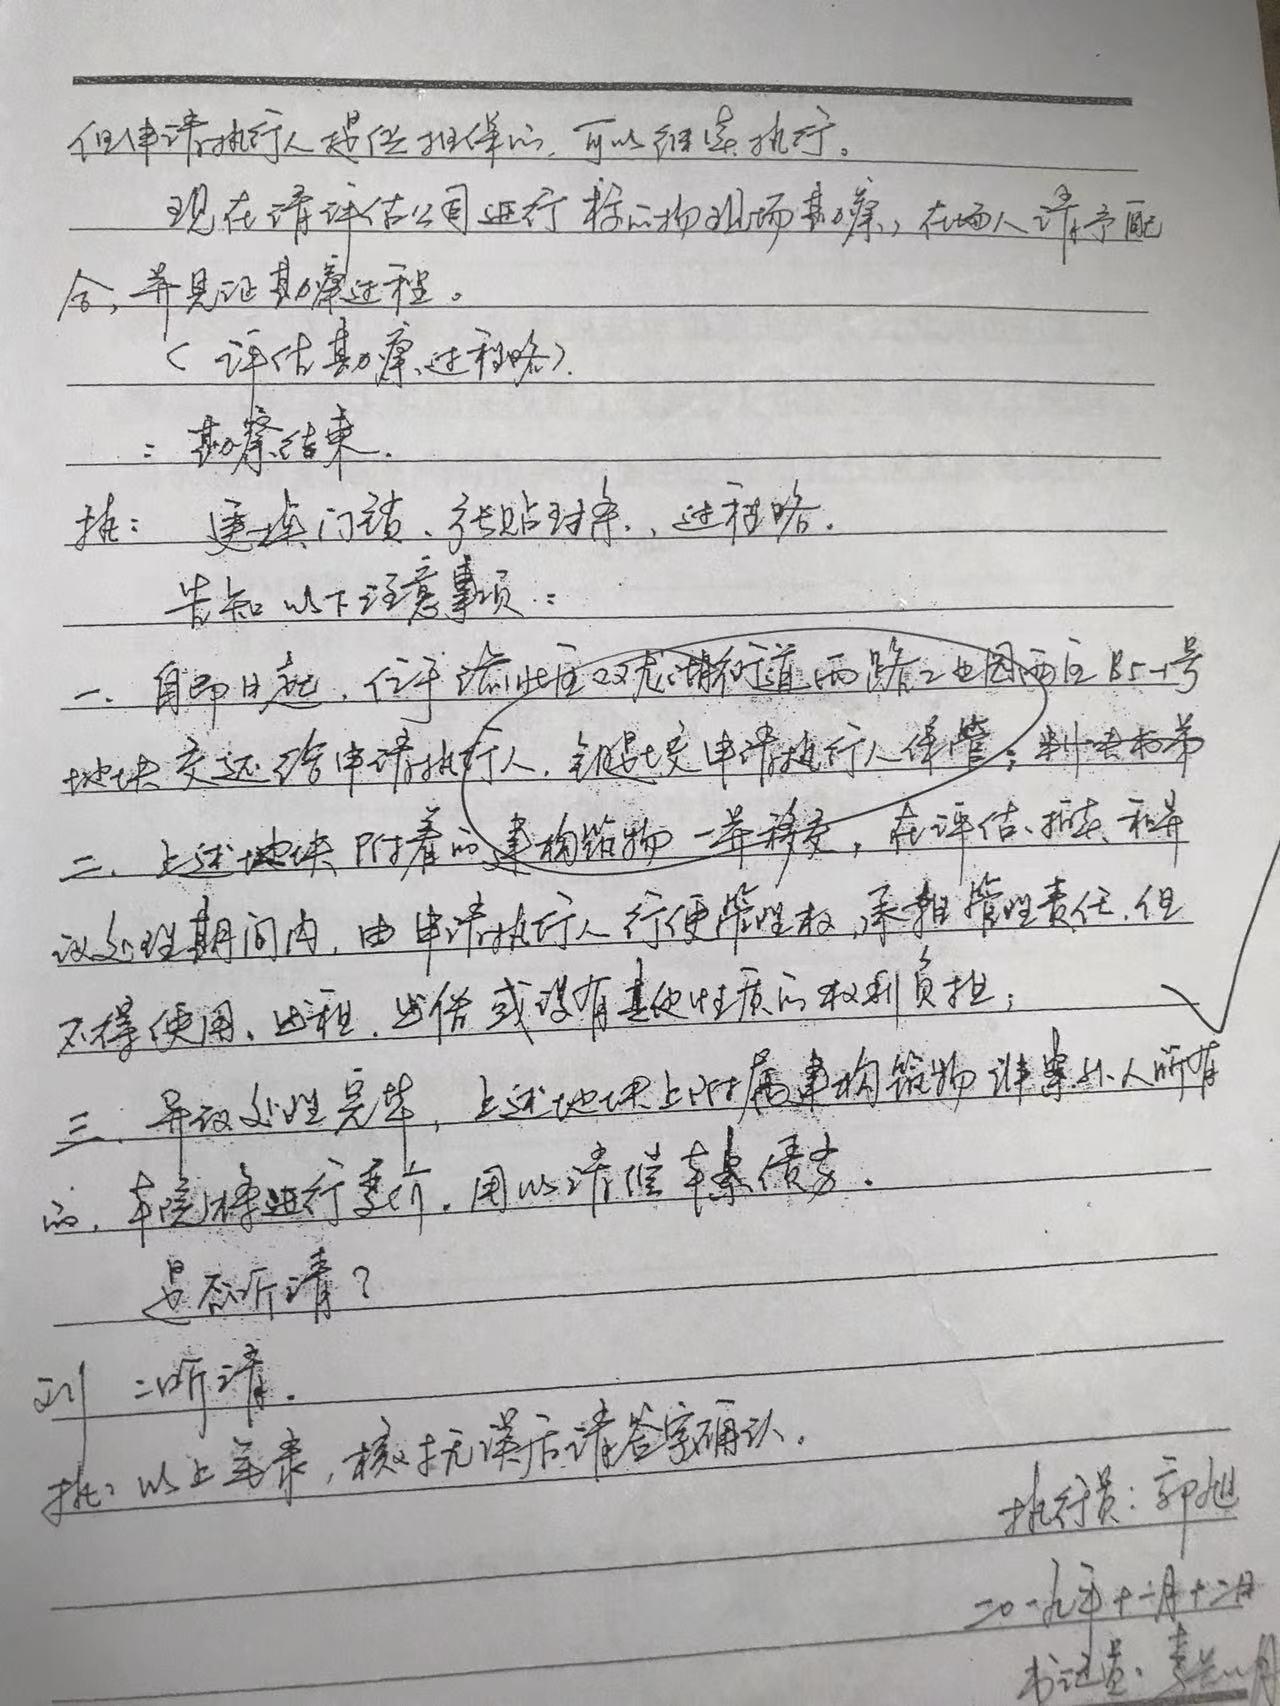 但申请执行人提供担保的，可以继续执行。
现在请评估公司进行标的物现场勘察，在场人请予配
合，并见证勘察过程。
（评估勘察过程略）.
：勘察结束.
执：更换门锁、张贴封条，过程略.
告知以下注意事项：
一、自即日起，位于渝北区双龙湖街道两路工业园西区B5-1号
地块交还给申请执行人，钥匙交申请执行人保管；
二、上述地块附着的建构筑物一并移交，在评估、拍卖和异
议处理期间内，由申请执行人行使管理权，承担管理责任，但
不得使用、出租、出借或设有其他性质的权利负担；
三、异议处理完毕，上述地块上附属建构筑物非案外人所有
的，本院将进行变价，用以清偿本案债务.
是否听清？
刘：听清.
执：以上笔录，核对无误后请签字确认.
执行员：郭旭
二0一九年十二月十二日
书记员：李